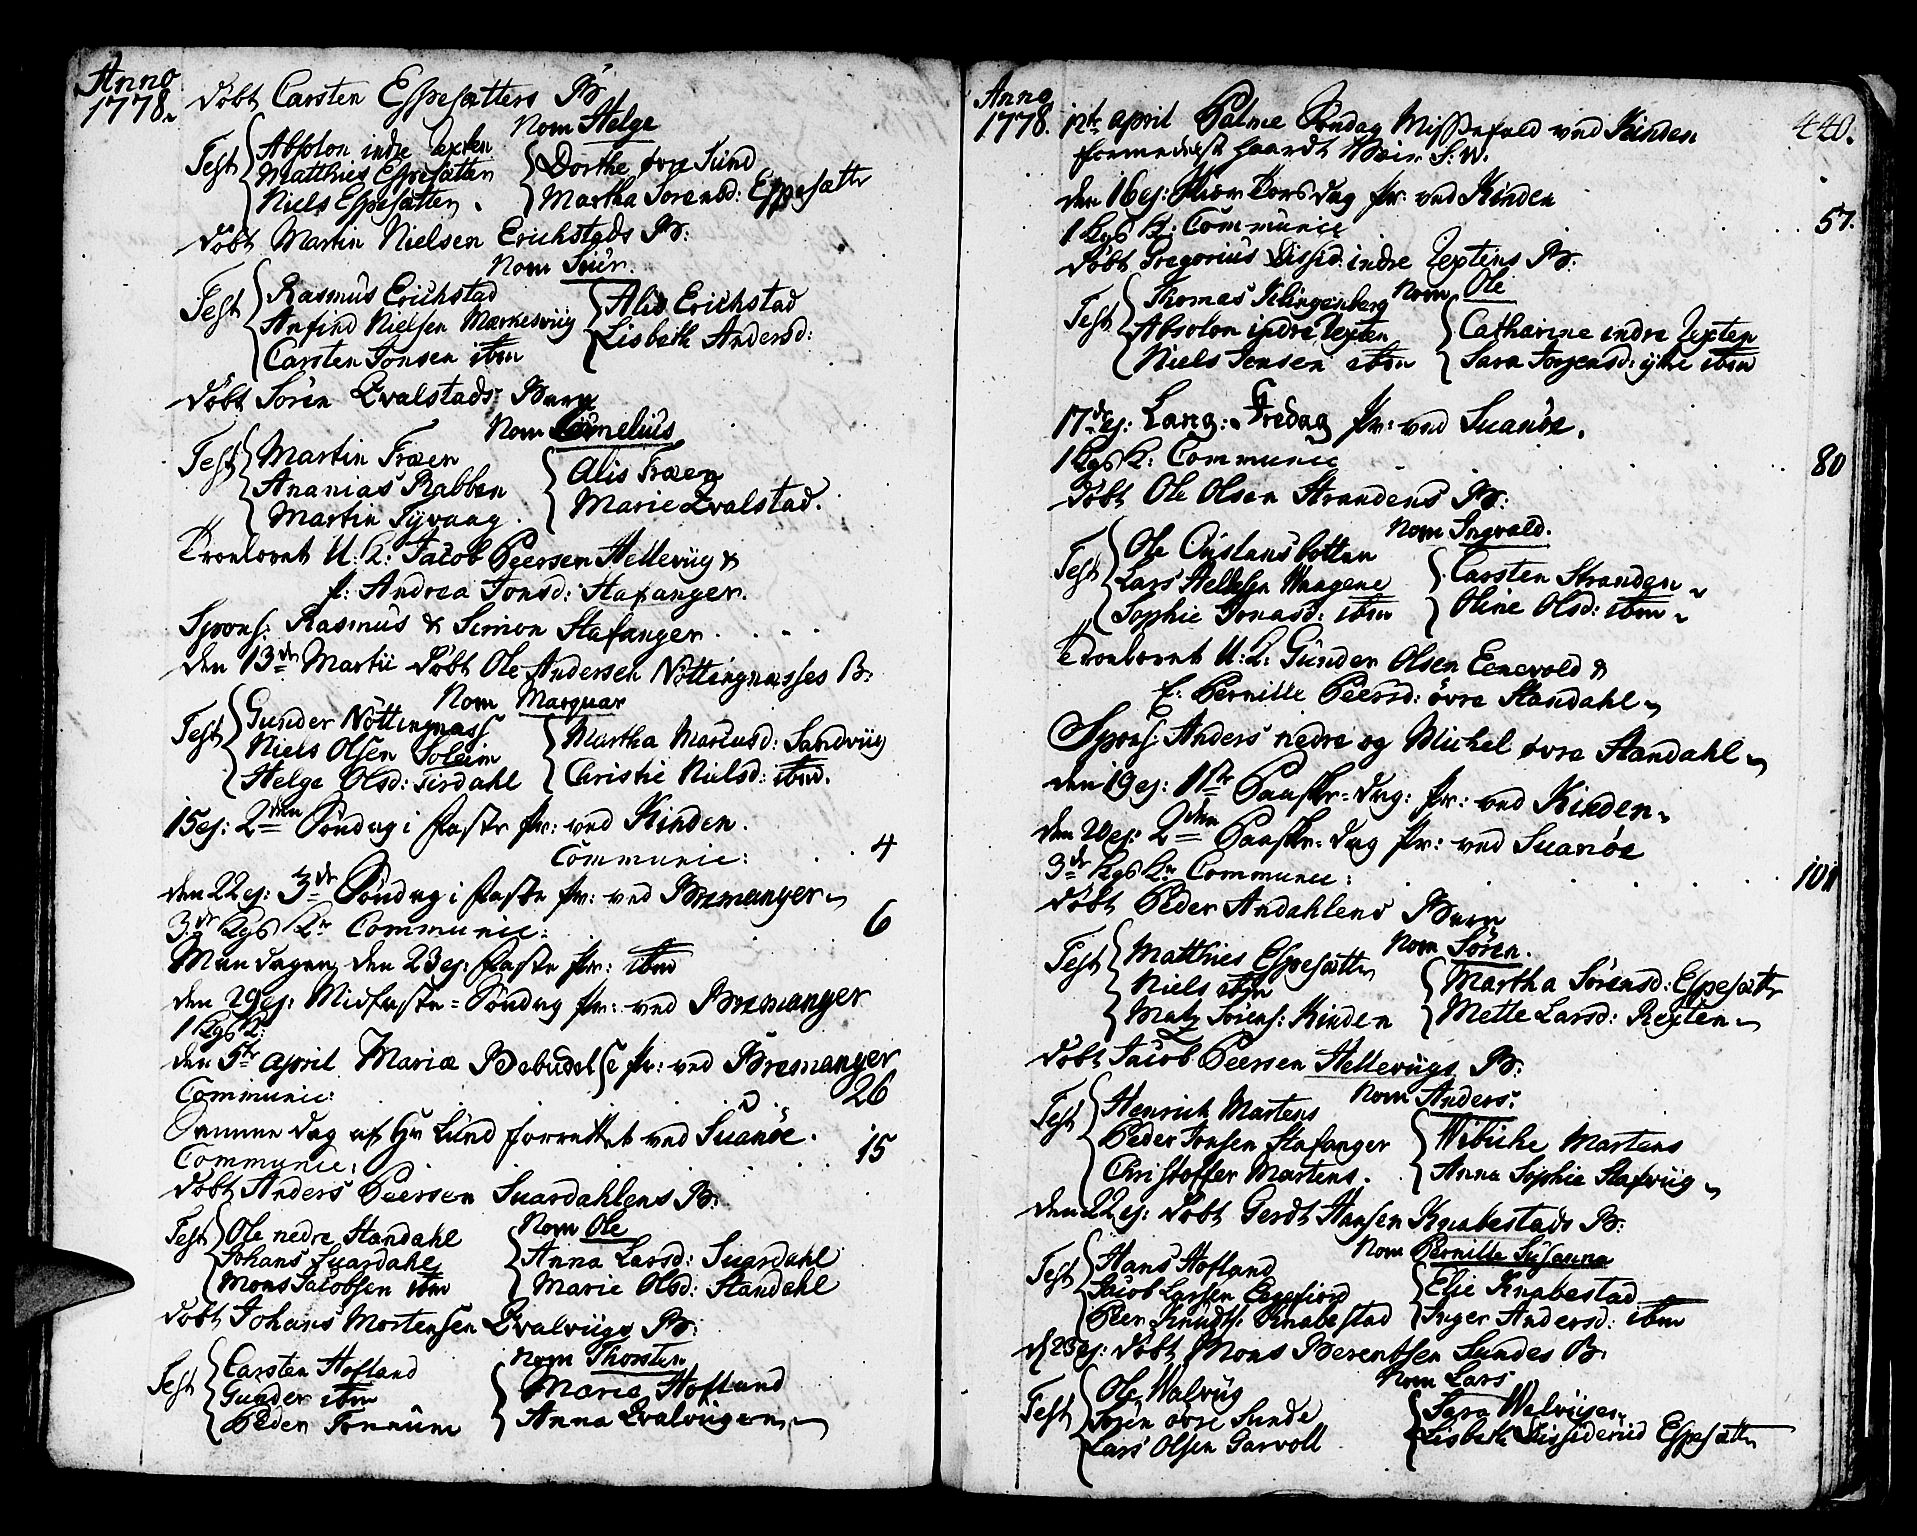 Anno
1778.
döbt Carsten Espesætters B:
Nom Helge
Test Absolon indre Rexten
Matthies Espesætten
Niels Espesætten.
Dorthe övre Sund
Martha Sörensd: Espesætt
döbt Martin Nielsen Erichstads B:
Nom Siur.
Test Rasmus Erichstad
Anfind Nielsen Markesviig
Carsten Jonsen ibm
Alis Erichstad
Lisbeth Andersd:
döbt Sören Qvalstads Barn
Nom Cornelius
Test Martin Træen
Ananias Rabben
Martin Tyvaag.
Alis Træen
Marie Qvalstad.
Trolovet U: K: Jacob Peersen Hellevüg &
f: Andrea Jonsd: Stafanger.
Spons: Rasmus & Simon Stafanger
den 13de Martii döbt Ole Andersen Nöttingnæsses B:
Nom Marquar
Test Gunder Nöttingnæss
Niels Olsen Soleim
Helge Olsd: Tirdahl
Martha Mariusd: Sandviig
Christie Nielsd: ibm.
15 ej: 2den Söndag i Faste pr: ved Kinden.
Communic: 4
den 22 ej: 3de Söndag i Faste pr: ved Bremanger
3de Kgs Kr Communic: 6
Mandagen den 23 ej: Faste pr: ibm
den 29 ej: Midfaste-Söndag pr: ved Bremanger
1 Kgs K:
den 5te April Mariæ Bebudelse pr: ved Bremanger
Communic: 26
Samme dag af Hr Lund forrettet ved Suanöe.
Communic: 15
döbt Anders Peersen Suardahlens B:
Nom Ole
Test Ole nedre Standahl
Johans Suardahl
Mons Jacobsen ibm
Anna Larsd: Suardahl
Marie Olsd: Standahl
döbt Johans Mortensen Qvalviigs B:
Nom Thorsten
Test Carsten Hofland
Gunder ibm
Peder
Maria Hofland
Anna Qvalviigen
Anno
1778.
440.
12te April Palme Söndag Missefald ved Kinden
formedelst haardt Veir S: W.
den 16 ej: Skior Torsdag pr: ved Kinden
1 Kgs K: Communic 57.
döbt Gregorius Dissid: indre Rextens B:
Nom Ole
Test Thomas Klingenberg
Absolon indre Rexten
Niels Jensen ibm
Catharine indre Rexten
Sara Jörgensd: ytre ibm
17de ej: Lang: Fredag pr: ved Suanöe.
1 Kgs K: Communic 80
döbt Ole Olsen Strandens B:
Nom Ingvald.
Test Ole Östensbotten
Lars Waagene
Sophie Jonasd: ibm
Carsten Stranden
Oline Olsd: ibm
Trolovet U: K: Gunder Olsen Eenevold &
f: Pernille Peersd: övre Standahl
Spons: Anders nedre og Michel övre Standahl
den 19 ej: 1ste Paaske-dag: pr: ved Kinden
den 20 ej: 2den Paaske-dag pr: ved Suanöe
3de Kgs Kr Communic: 101
döbt Peder Andahlens Barn
Nom Sören.
Test Matthies Espesætt
Niels ibm
Matz Sörens: Kinden
Martha Sörensd: Espesætt
Mette Larsd: Rexten
döbt Jacob Peersen Hellevügs B:
Nom Anders:
Test Henrich Martens
Peder Jonsen Stafanger
Christoffer Martens.
Wibiche Martens
Anna Sophie Stafviig
den 22 ej: döbt Gerdt Hansen Knabestads B:
Nom Pernille Susanna
Test Hans Hofland
Jacob Larsen
Peer Knuds: Knabestad
Elie Knabestad
Inger Andersd: ibm
d. 23 ej: döbt Mons Berentsen Sundes B:
Nom Lars
Test Ole Walviig
Sören övre Sunde
Lars Olsen Garvoll
Sara Walviigen
Lisbeth Espesætt